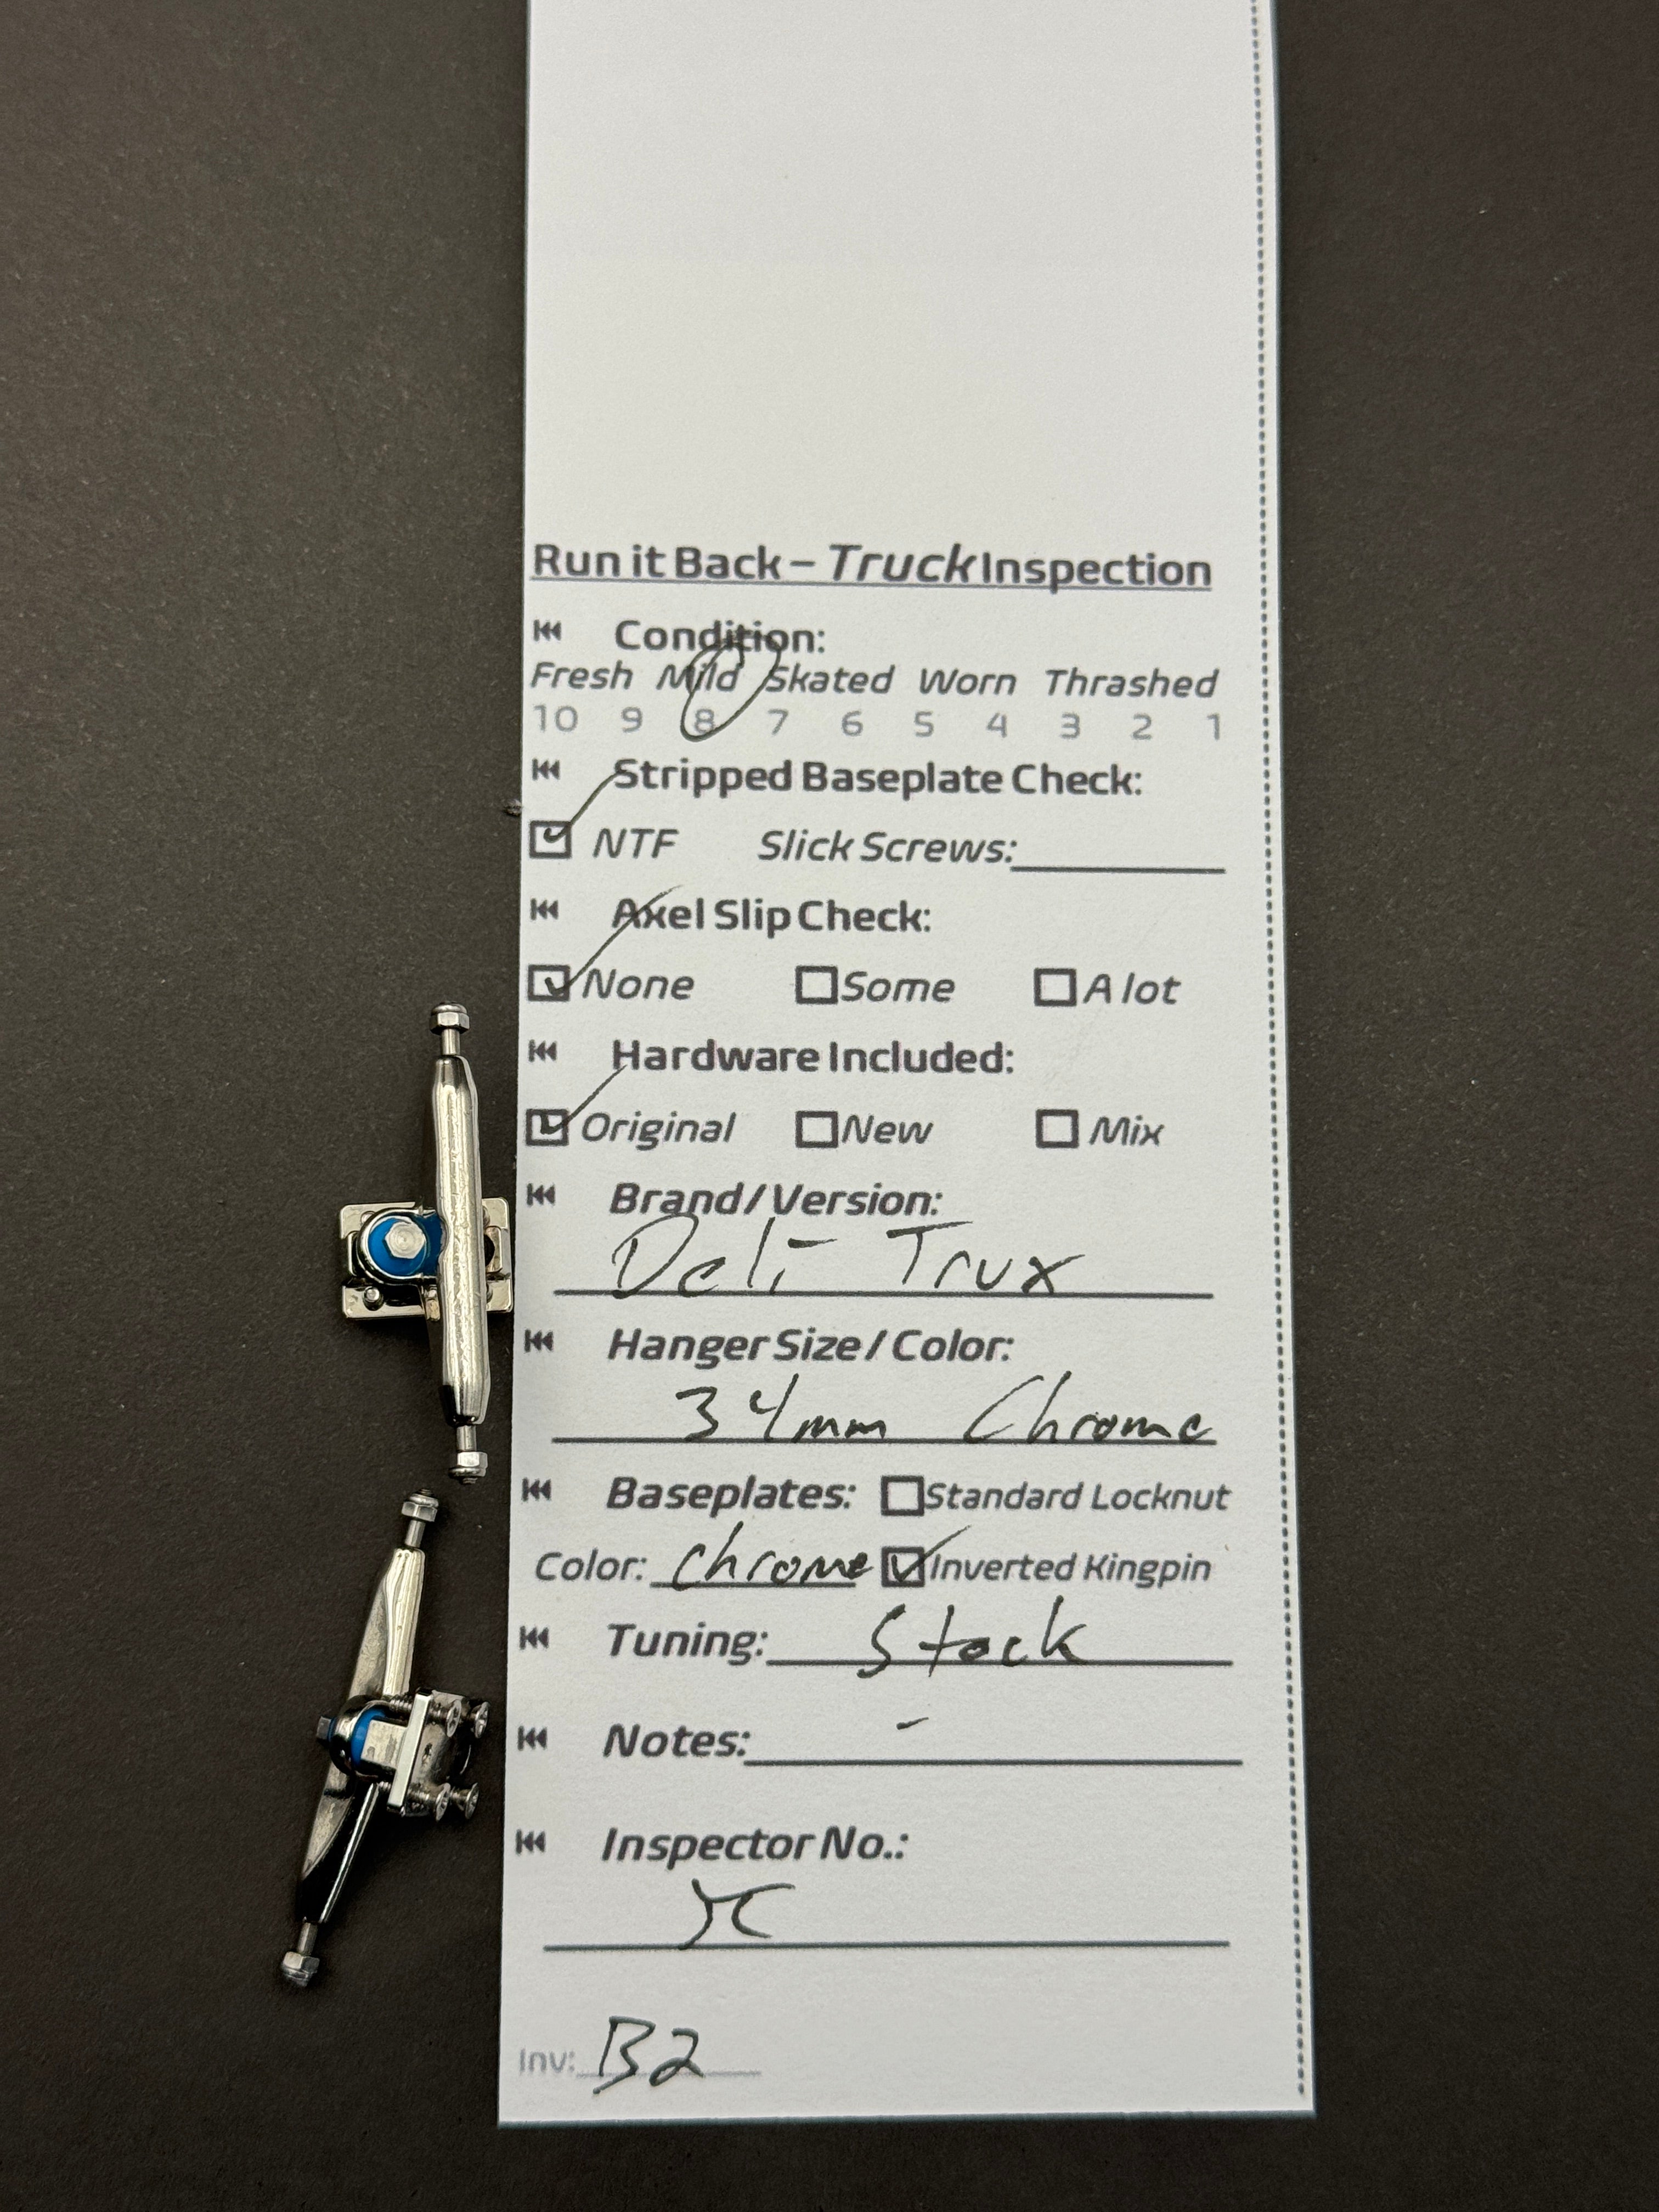 Run it Back – Truck Inspection
Condition:
Fresh Mild Skated Worn Thrashed
10 9 8 7 6 5 4 3 2 1
Stripped Baseplate Check:
NTF Slick Screws:
Axel Slip Check:
None Some A lot
Hardware Included:
Original New Mix
Brand/Version:
Deli Trux
Hanger Size / Color:
34mm Chrome
Baseplates: Standard Locknut
Color: chrome Inverted Kingpin
Tuning: Stock
Notes: -
Inspector No.:
Inv: B2